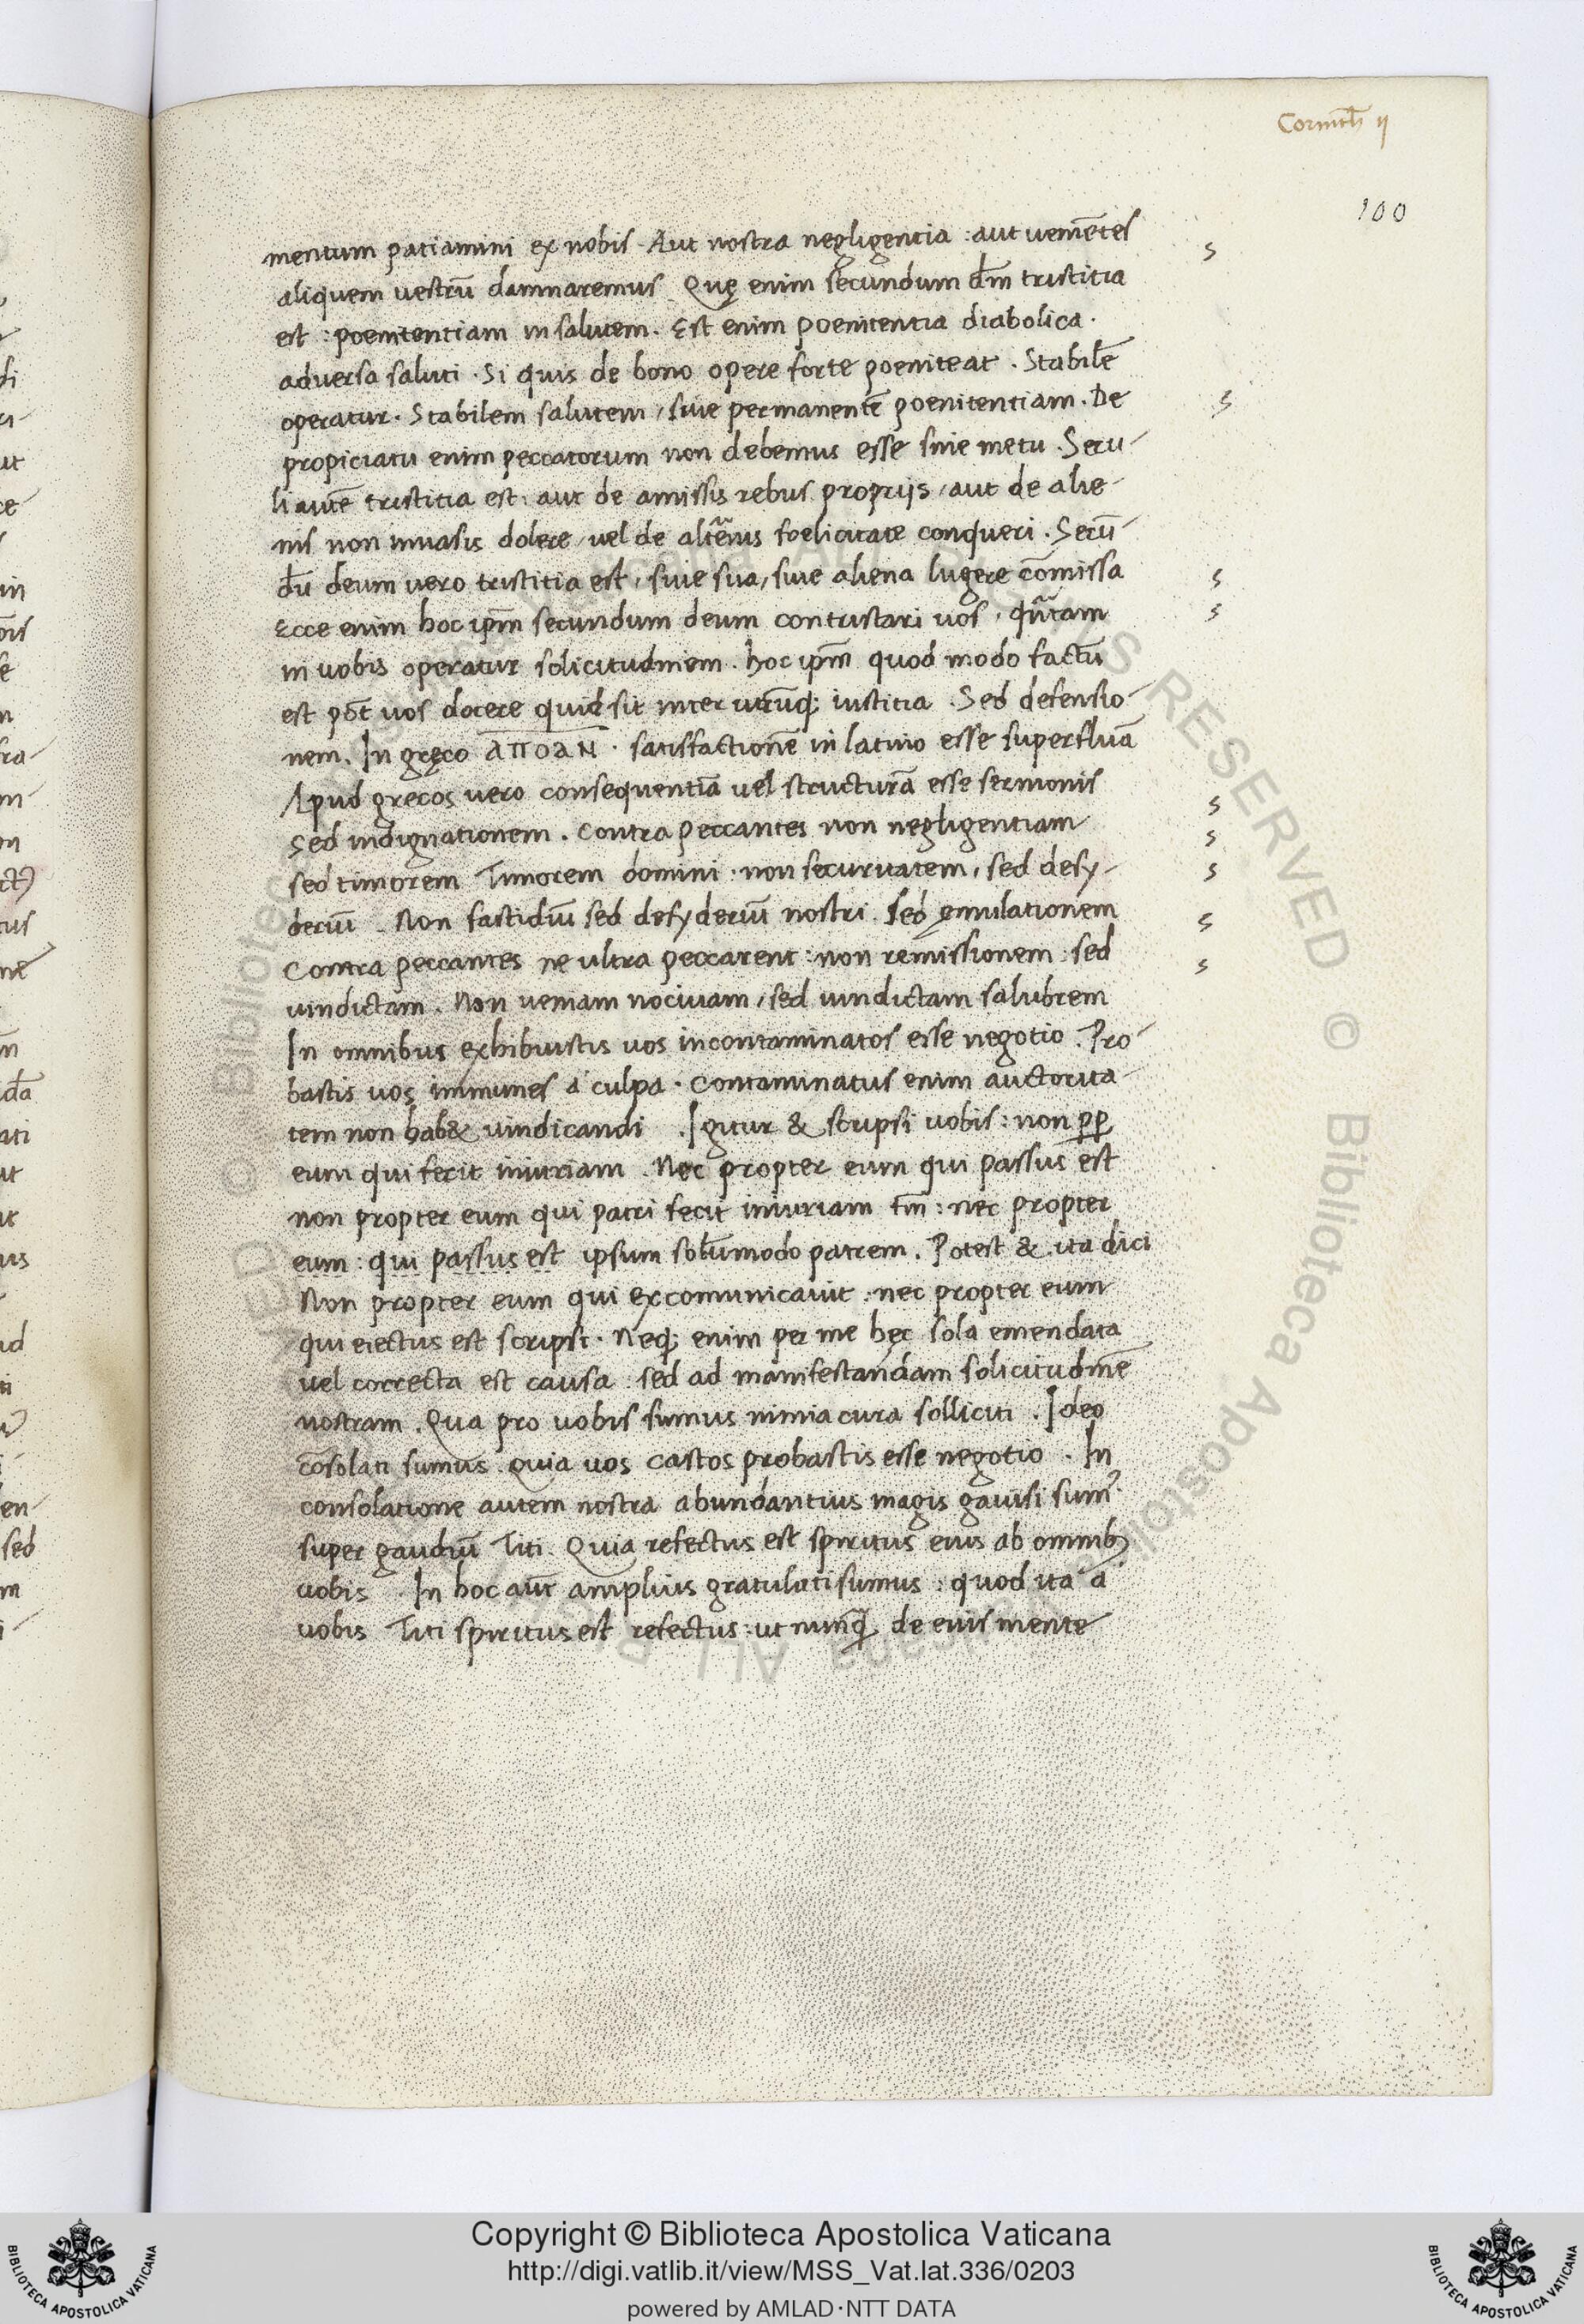 Corinth̄ ij
100
mentum patiamini ex nobis. Aut nostra negligentia : aut uenie̅tes
aliquem uestrū damnaremus. Quę enim secundum dm̄ tristitia
est : poenitentiam in salutem. Est enim poenitentia diabolica.
adversa saluti. Si quis de bono opere forte poeniteat. Stabilē
operatur. Stabilem salutem, siue permanentē poenitentiam. De
propiciatu enim peccatorum non debemus esse sine metu. Secu-
li autē tristitia est: aut de amissis rebus proprijs, aut de alie-
nis non inuasis dolere, uel de alterius foelicitate conqueri. Secū-
dū deum uero tristitia est, siue sua, siue aliena lugere cōmissa
Ecce enim hoc ipm̄ secundum deum contristari uos, qn̄tam
in uobis operatur solicitudinem. hoc ipm̄ quod modo factū
est pōt uos docere quid sit inter utrūq; iustitia. Sed defensio-
nem. In gręco ΑΠΟΛΝ. satisfactionē in latino esse superfluā
Apud grecos uero consequentiā uel structurā esse sermonis
Sed indignationem. Contra peccantes non negligentiam
sed timorem Timorem domini. non securitatem, sed desy-
deriū. Non fastidiū sed desyderiū nostri. sed ęmulationem
Contra peccantes ne ultra peccarent: non remissionem: sed
uindictam. Non ueniam nociuam, sed uindictam salubrem
In omnibus exhibuistis uos incontaminatos esse negotio. Pro-
bastis uos immunes a culpa. Contaminatus enim auctorita-
tem non hab& uindicandi. Igitur & scripsi uobis: non pp̄
eum qui fecit iniuriam. Nec propter eum qui passus est
non propter eum qui patri fecit iniuriam tm̄: nec propter
eum: qui passus est ipsum solūmodo patrem. Potest & ita dici
Non propter eum qui excomunicauit: nec propter eum
qui eiectus est scripsi. Neq; enim per me hęc sola emendata
uel correcta est causa: sed ad manifestandam solicitudinē
nostram. Qua pro uobis sumus nimia cura solliciti. Ideo
cōsolati sumus. Quia uos castos probastis esse negotio. In
consolatione autem nostra abundantius magis gauisi sum9
super gaudiū Titi. Quia refectus est spiritus eius ab omnib;
uobis. In hoc aūt amplius gratulati sumus: quod ita a
uobis Titi spiritus est refectus: ut nunq̄ de eius mente
Copyright © Biblioteca Apostolica Vaticana
http://digi.vatlib.it/view/MSS_Vat.lat.336/0203
powered by AMLAD·NTT DATA